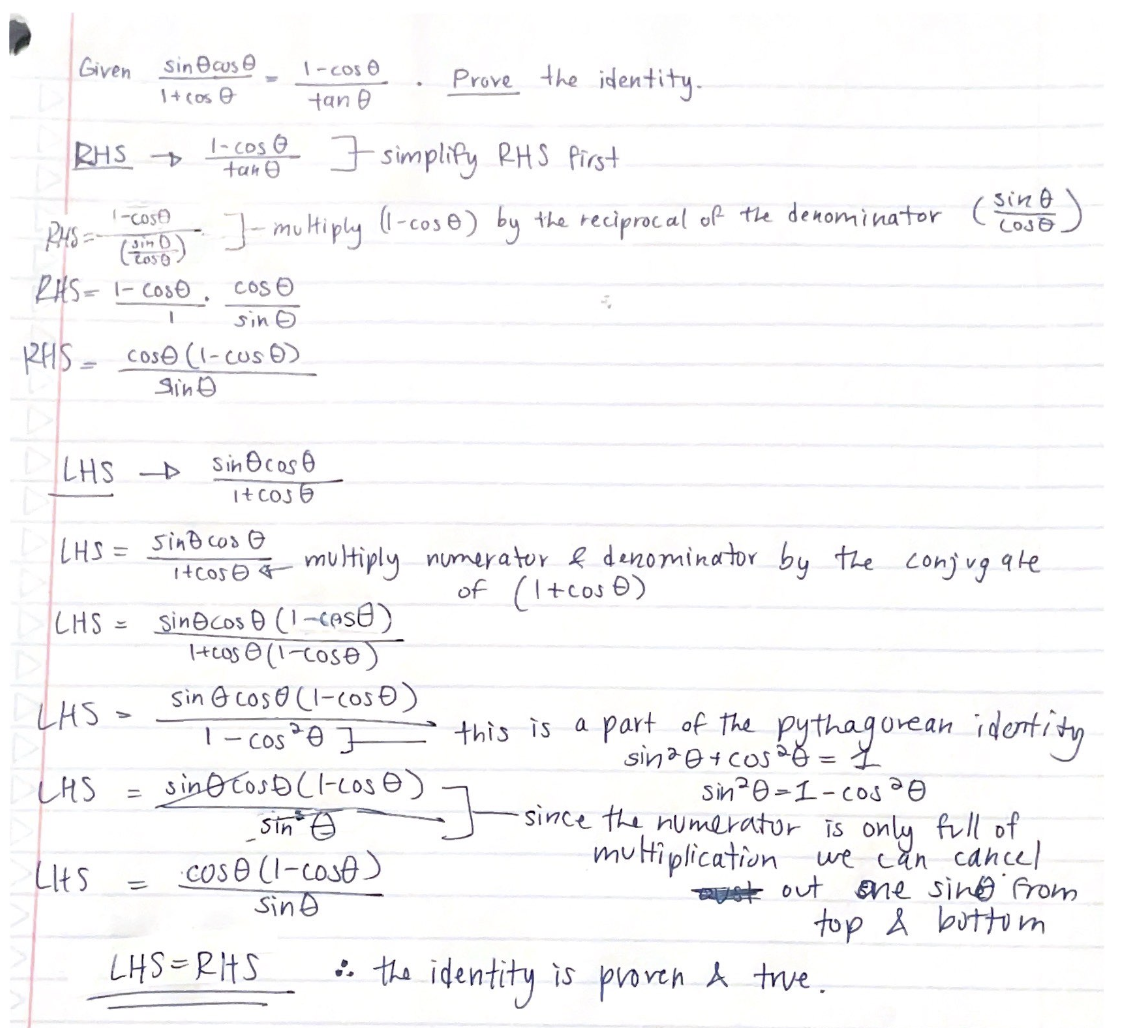 Given sinθcosθ/1+cosθ = 1-cosθ/tanθ . Prove the identity.
RHS → 1-cosθ/tanθ ] simplify RHS first
RHS = 1-cosθ/(sinθ/cosθ) ] multiply (1-cosθ) by the reciprocal of the denominator (sinθ/cosθ)
RHS = 1-cosθ/1 · cosθ/sinθ
RHS = cosθ(1-cosθ)/sinθ
LHS → sinθcosθ/1+cosθ
LHS = sinθcosθ/1+cosθ ← multiply numerator & denominator by the conjugate
of (1+cosθ)
LHS = sinθcosθ(1-cosθ)/1+cosθ(1-cosθ)
LHS = sinθcosθ(1-cosθ)/1-cos²θ ] this is a part of the pythagorean identity
sin²θ+cos²θ=1
sin²θ=1-cos²θ
LHS = sinθcosθ(1-cosθ)/sin²θ ] since the numerator is only full of
multiplication we can cancel
out one sinθ from
top & bottom
LHS = cosθ(1-cosθ)/sinθ
LHS=RHS ∴ the identity is proven & true.